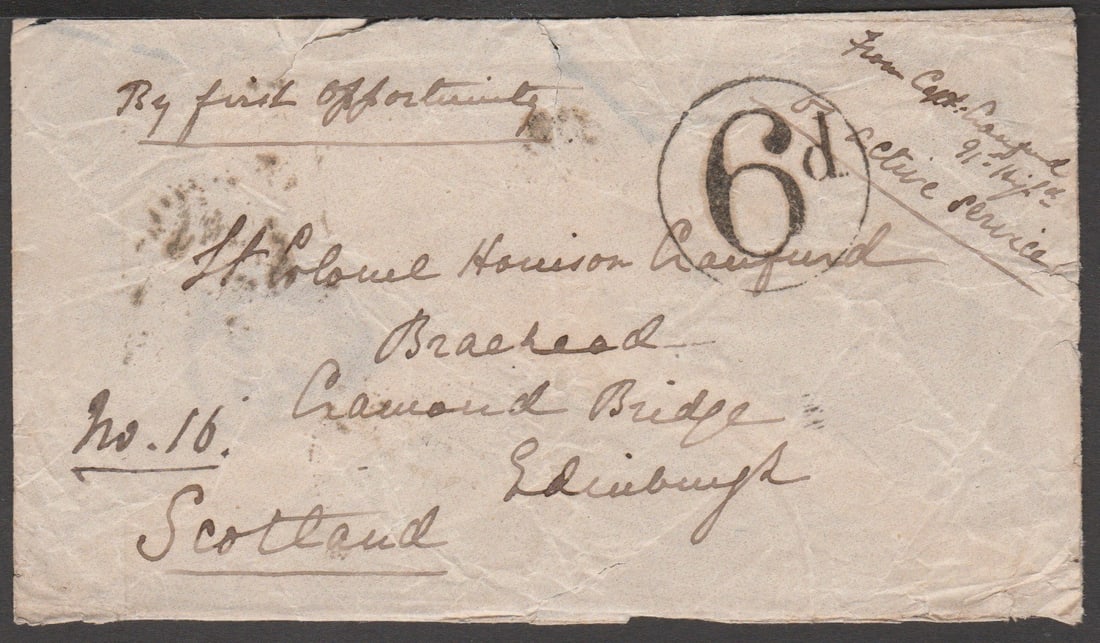 By first opportunity
From Capt. Craufurd
91st High
On active service
6d.
Lt Colonel Houison Craufurd
Braehead
Cramond Bridge
Edinburgh
No. 16.
Scotland